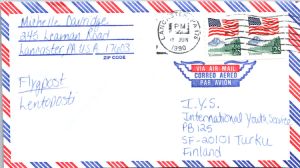 Michelle Davidge
340 Leaman Road
Lancaster PA U.S.A. 17603
ZIP CODE
Flygpost
Lentoposti
LANCASTER, PA
PM
JUN
1990
VIA AIR MAIL
CORREO AEREO
PAR AVION
I.Y.S.
International Youth Service
PB 125
SF-20101 Turku
Finland